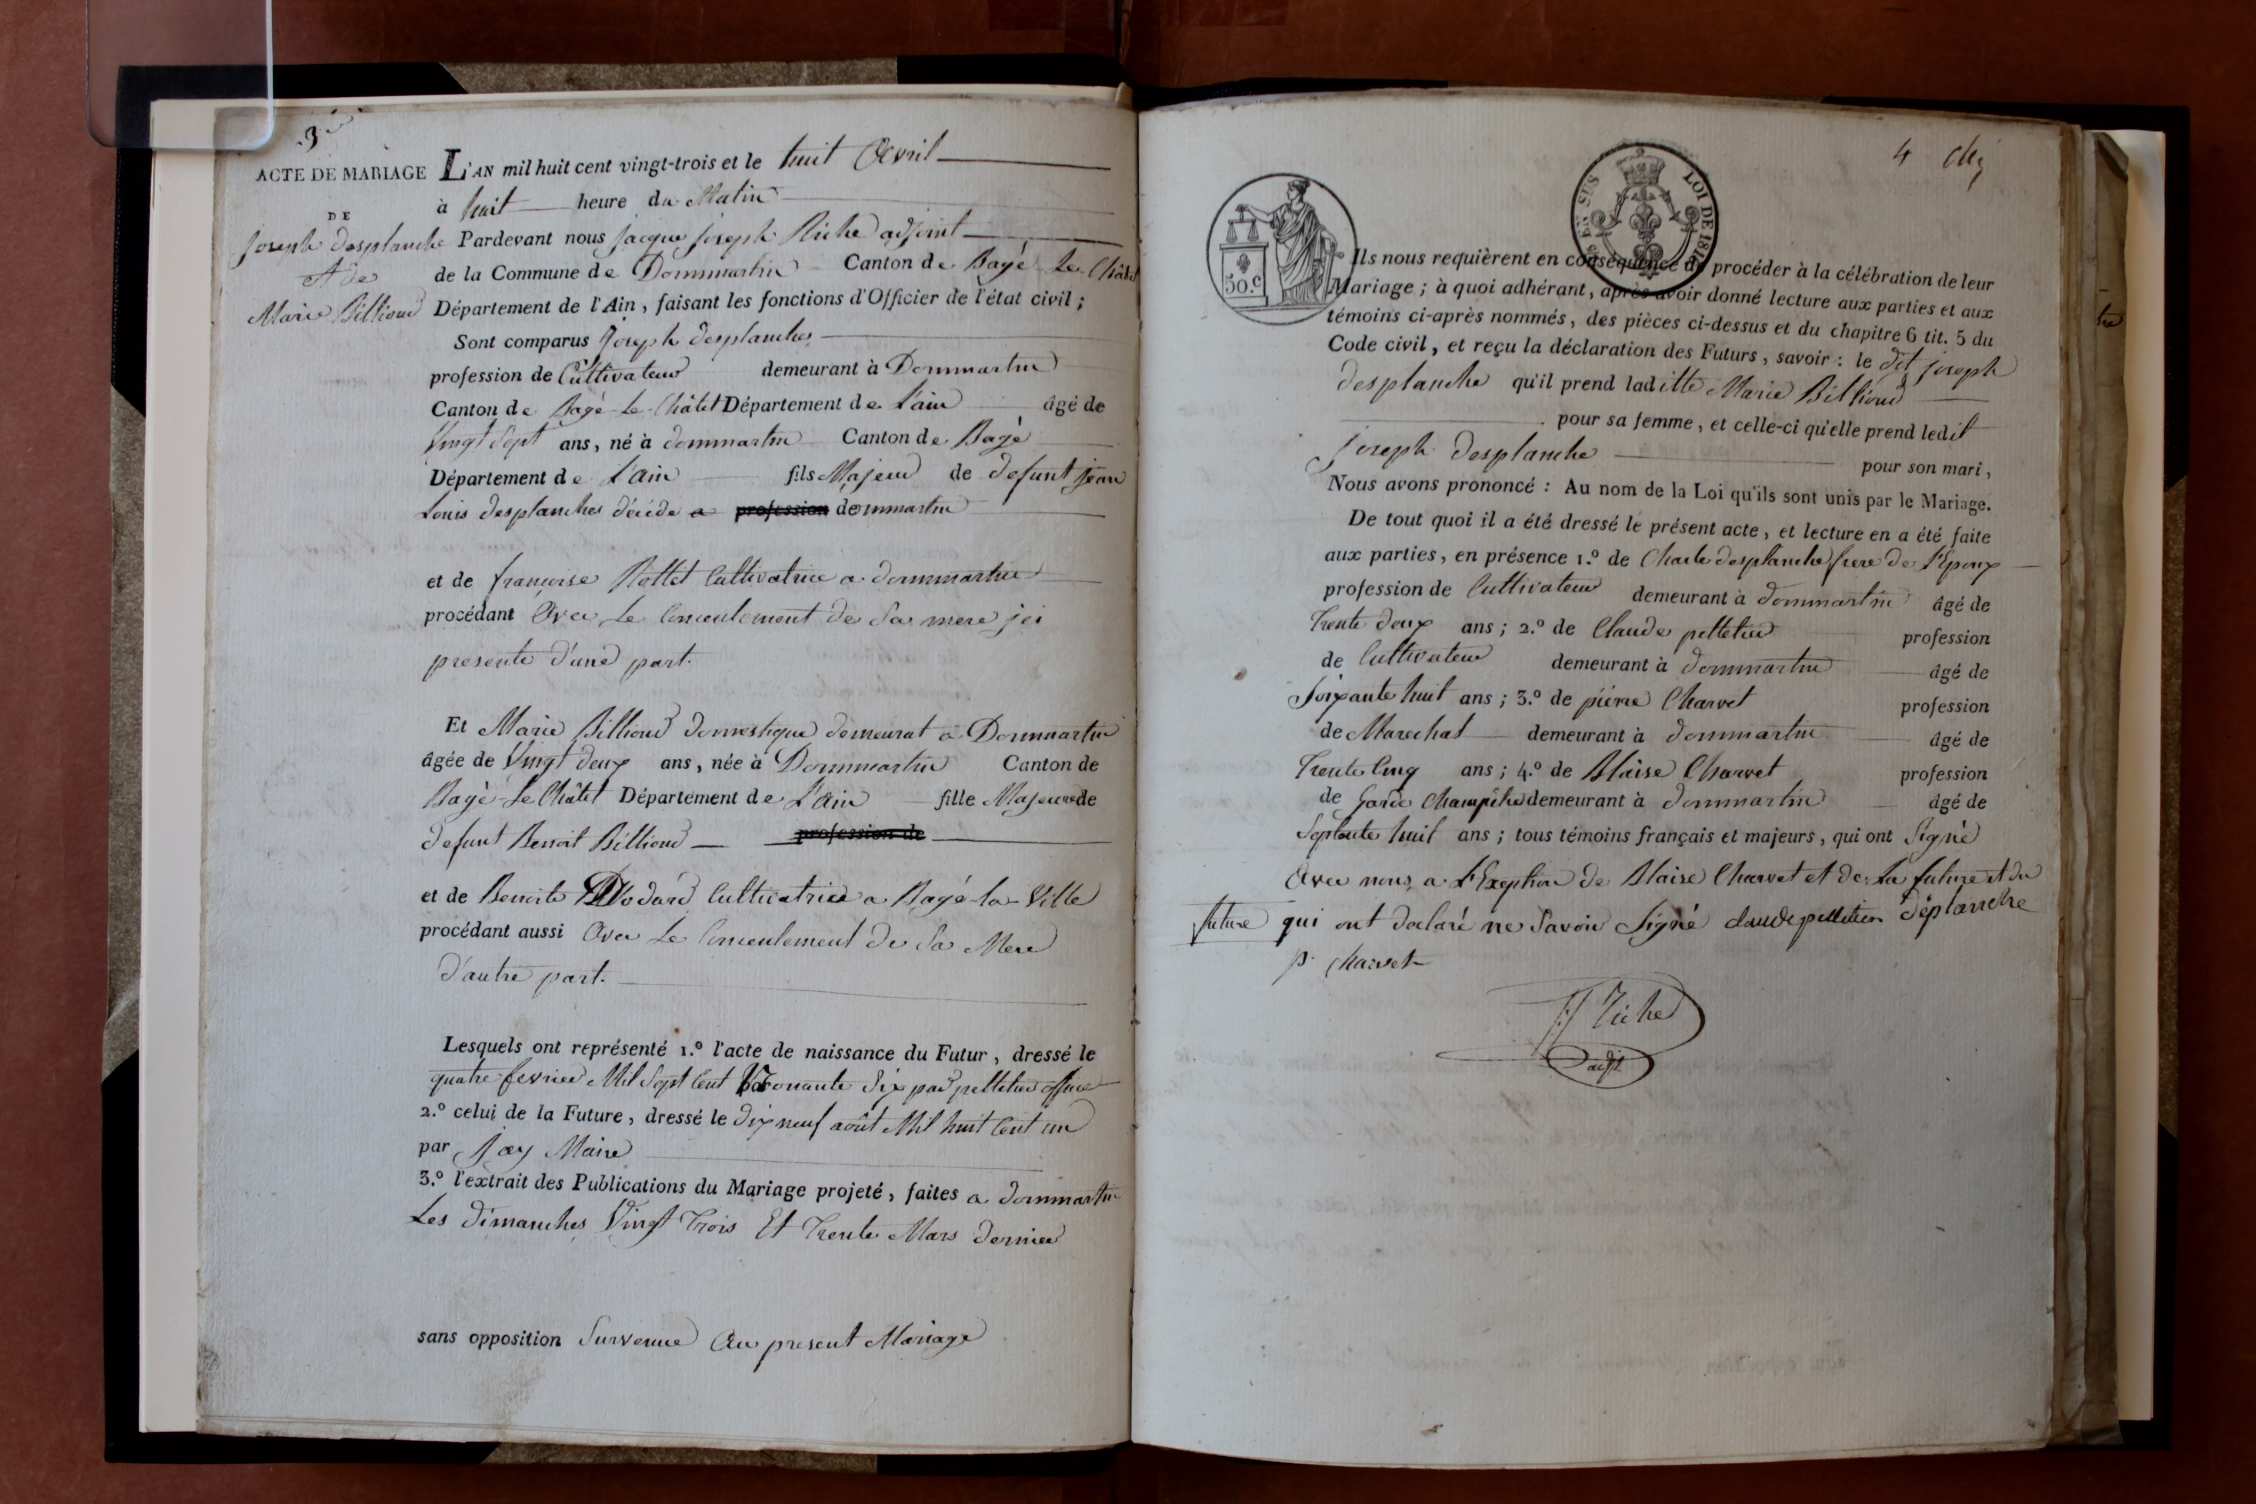 3
ACTE DE MARIAGE
DE
Joseph desplanche
Et de
Marie Billioud
L'AN mil huit cent vingt-trois et le huit Avril
à huit heure du Matin
Pardevant nous jacque joseph Riche adjoint
de la Commune de Dommartin Canton de Bagé Le Châtel
Département de l'Ain, faisant les fonctions d'Officier de l'état civil ;
Sont comparus Joseph desplanches
profession de Cultivateur demeurant à Dommartin
Canton de Bagé-Le-Châtel Département de L'ain âgé de
Vingt Sept ans, né à dommartin Canton de Bagé
Département de L'ain fils Majeur de defunt jean
Louis desplanches décédé a profession dommartin
et de françoise Rollet Cultivatrice a dommartin
procédant Avec Le Consentement de Sa mere jci
presente d'une part.
Et Marie Billioud domestique demeurat a Dommartin
âgée de Vingt deux ans, née à Dommartin Canton de
Bagé-Le Châtel Département de L'Ain fille Majeure de
defunt Benoit Billioud profession de
et de Benoite Cultivatrice a Bagé-la-Ville
procédant aussi Avec Le Consentement de Sa Mere
d'autre part.
Lesquels ont représenté 1.º l'acte de naissance du Futur, dressé le
quatre fevrier Mil Sept Cent Nonante Six par pelletier
2.º celui de la Future, dressé le dix neuf août Mil huit Cent un
par Maire
3.º l'extrait des Publications du Mariage projeté, faites a dommartin
Les dimanches Vingt Trois Et Trente Mars dernier
sans opposition Survenue Au present Mariage
4
50.C
EN SUS LOI DE
Ils nous requièrent en conséquence de procéder à la célébration de leur
Mariage ; à quoi adhérant, après avoir donné lecture aux parties et aux
témoins ci-après nommés, des pièces ci-dessus et du chapitre 6 tit. 5 du
Code civil, et reçu la déclaration des Futurs, savoir : le dit joseph
desplanche qu'il prend laditte Marie Billioud
pour sa femme, et celle-ci qu'elle prend ledit
joseph desplanche pour son mari,
Nous avons prononcé : Au nom de la Loi qu'ils sont unis par le Mariage.
De tout quoi il a été dressé le présent acte, et lecture en a été faite
aux parties, en présence 1.º de Charle desplanche frere de L'Epoux
profession de Cultivateur demeurant à dommartin âgé de
Trente deux ans ; 2.º de Claude pelletier profession
de Cultivateur demeurant à dommartin âgé de
Soixante huit ans ; 3.º de pierre Charvet profession
de Marechal demeurant à dommartin âgé de
Trente Cinq ans ; 4.º de Blaise Charvet profession
de Garde Champêtre demeurant à dommartin âgé de
Septante huit ans ; tous témoins français et majeurs, qui ont Signé
Avec nous a L'Exeption de Blaise Charvet et de La future et du
future qui ont declaré ne Savoir Signé claude pelletier déplanche
p. charvet
Riche
adjt